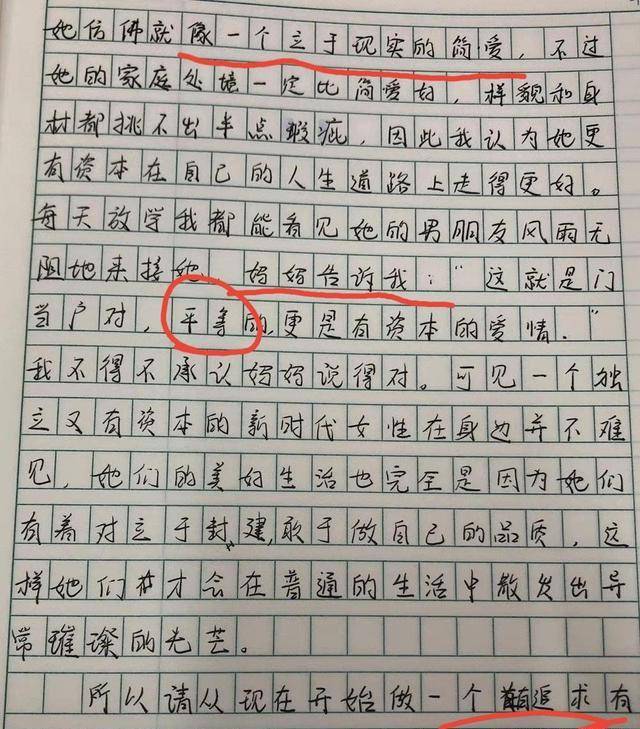 她仿佛就像一个立于现实的简爱，不过
她的家庭处境一定比简爱好，样貌和身
材都挑不出半点瑕疵，因此我认为她更
有资本在自己的人生道路上走得更好。
每天放学我都能看见她的男朋友风雨无
阻地来接她，妈妈告诉我：“这就是门
当户对，平等的，更是有资本的爱情.”
我不得不承认妈妈说得对。可见一个独
立又有资本的新时代女性在身边并不难
见，她们的美好生活也完全是因为她们
有着对立于封建，敢于做自己的品质，这
样她们才会在普通的生活中散发出异
常璀璨的光芒。
所以请从现在开始做一个有追求有